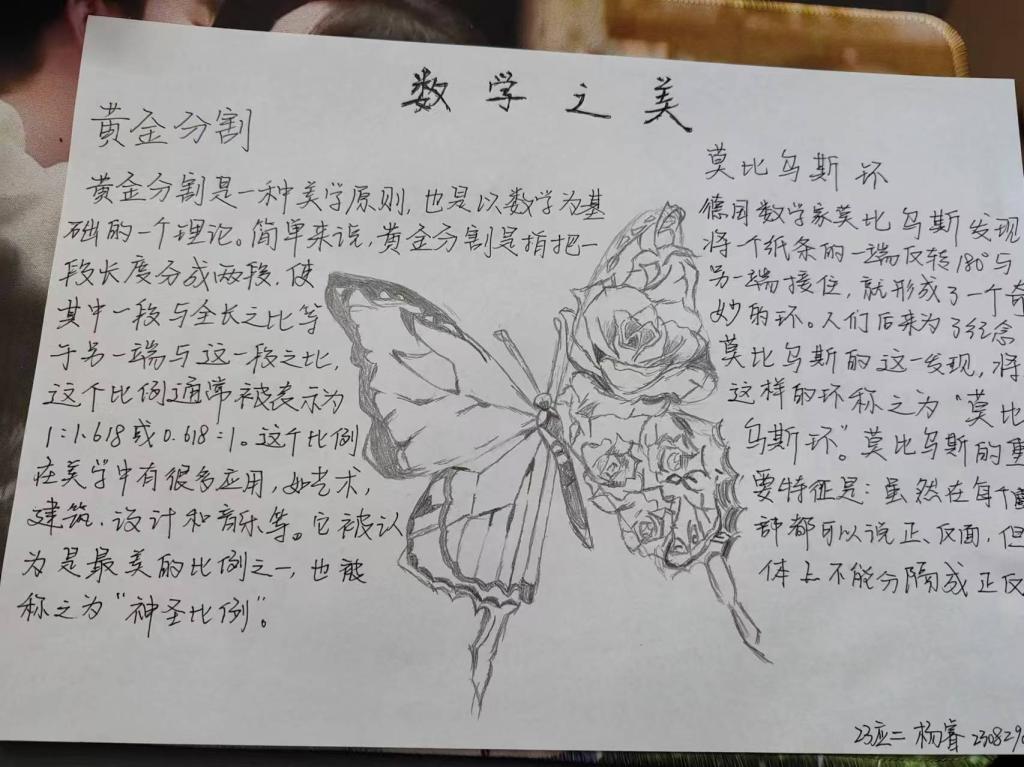 数学之美
黄金分割
黄金分割是一种美学原则,也是以数学为基
础的一个理论。简单来说,黄金分割是指把一
段长度分成两段,使
其中一段与全长之比等
于另一端与这一段之比,
这个比例通常被表示为
1:1.618或0.618:1。这个比例
在美学中有很多应用,如艺术,
建筑、设计和音乐等。它被认
为是最美的比例之一,也被
称之为“神圣比例”。
莫比乌斯环
德国数学家莫比乌斯发现
将一个纸条的一端反转180°与
另一端接住,就形成了一个奇
妙的环。人们后来为了纪念
莫比乌斯的这一发现,将
这样的环称之为“莫比
乌斯环”。莫比乌斯的重
要特征是:虽然在每个
部都可以说正、反面,但
体上不能分隔成正反
23应二 杨睿 230829